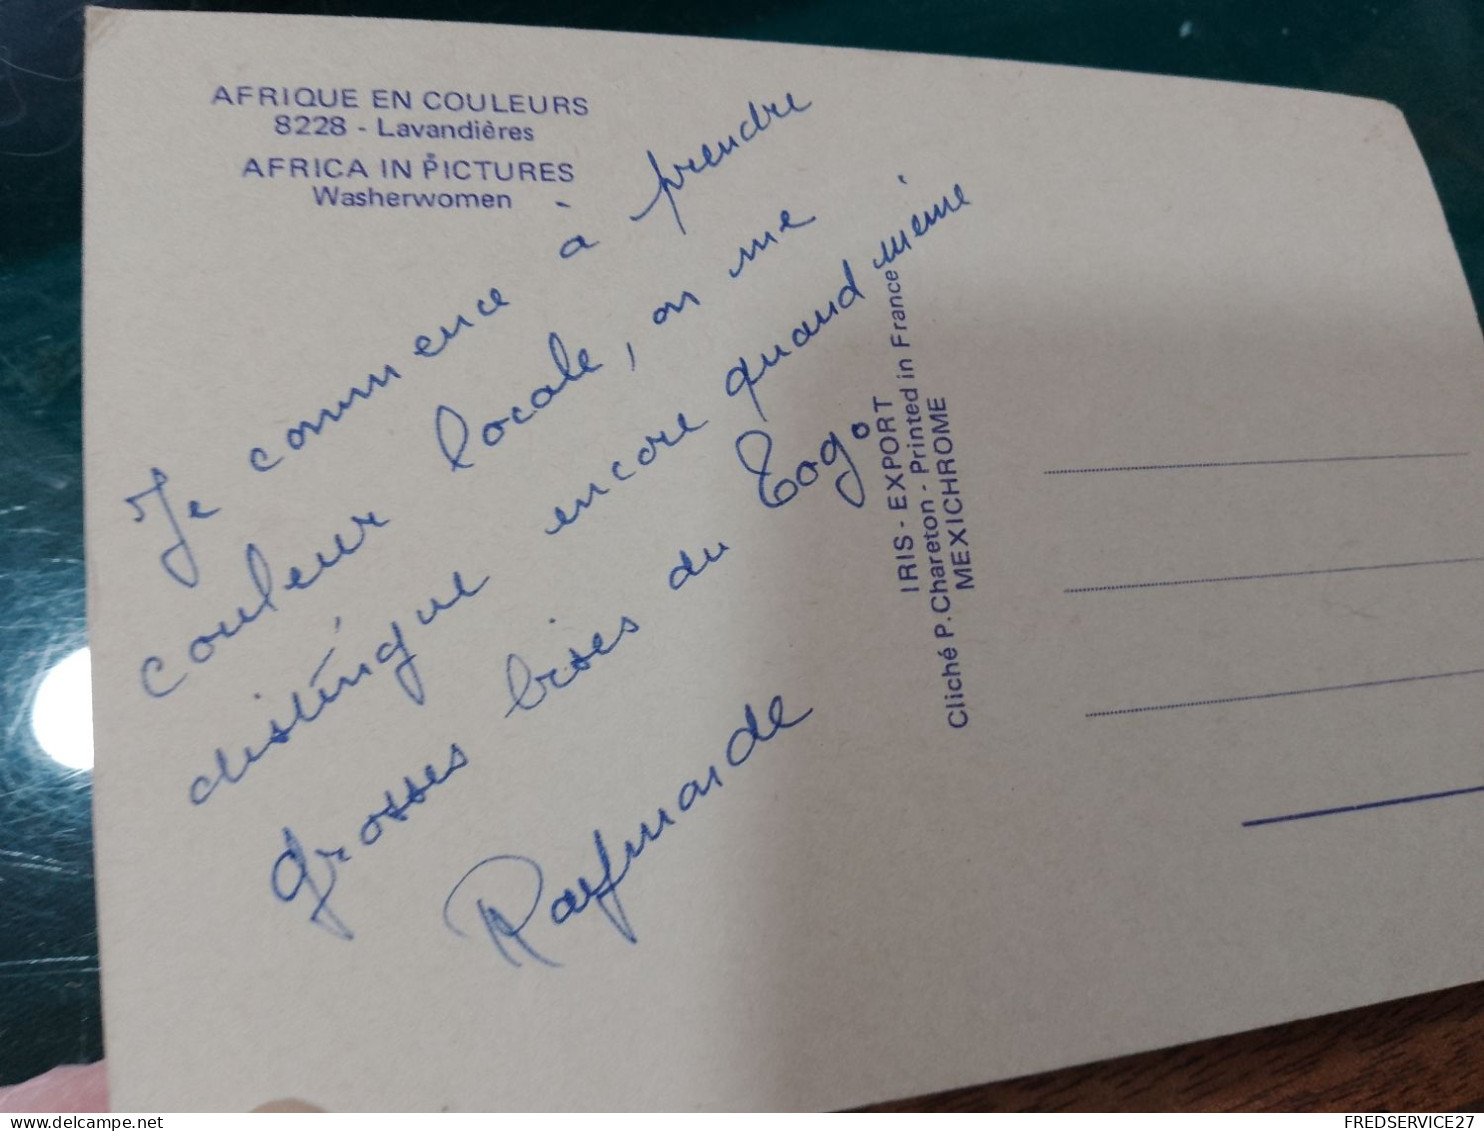 AFRIQUE EN COULEURS
8228 - Lavandières
AFRICA IN PICTURES
Washerwomen
Je commence à prendre
couleur locale, on me
distingue encore quand même
grosses bises du Togo
Raymonde
IRIS - EXPORT
Cliché P. Chareton - Printed in France
MEXICHROME
FREDSERVICE27